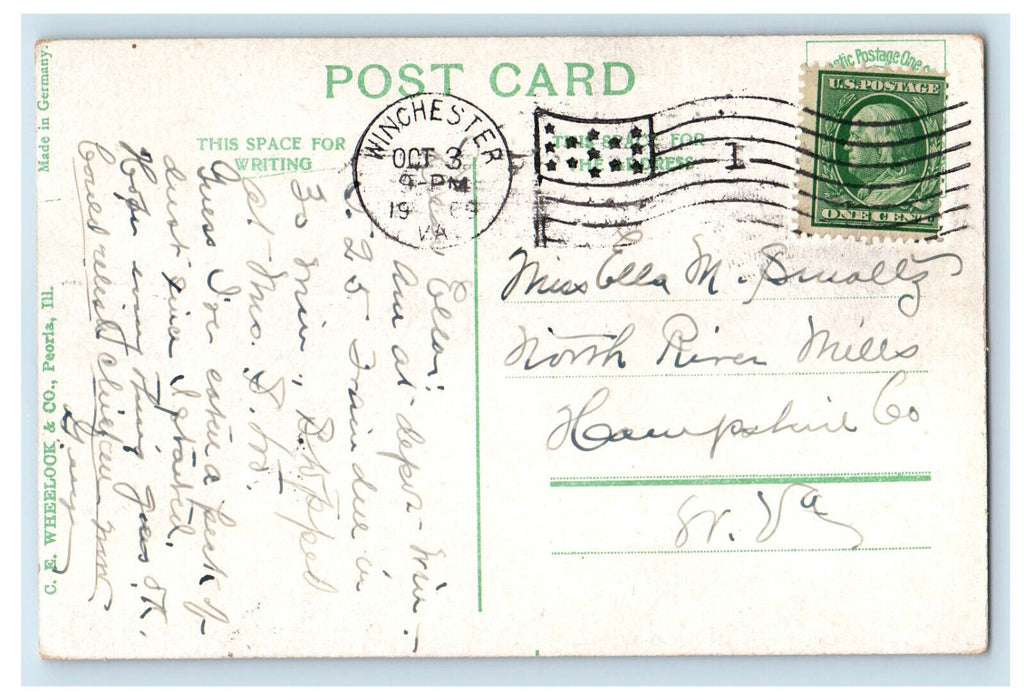 POST CARD
THIS SPACE FOR
WRITING
THIS SPACE FOR
THE ADDRESS
Domestic Postage One
U.S. POSTAGE
ONE CENT
WINCHESTER
OCT 3
9-PM
19 09
VA.
1
Miss Ella M. Smaltz
North River Mills
Hampshire Co
W. Va
Dear Ella:
Am at depot - Win-
5.25 Train due in
30 min, Stopped
at Mrs. S. W.
Guess I've eaten a peck of
dust since I started.
Hope everything goes O.K.
Could relish chicken now
Made in Germany.
C. E. WHEELOCK & CO., Peoria, Ill.